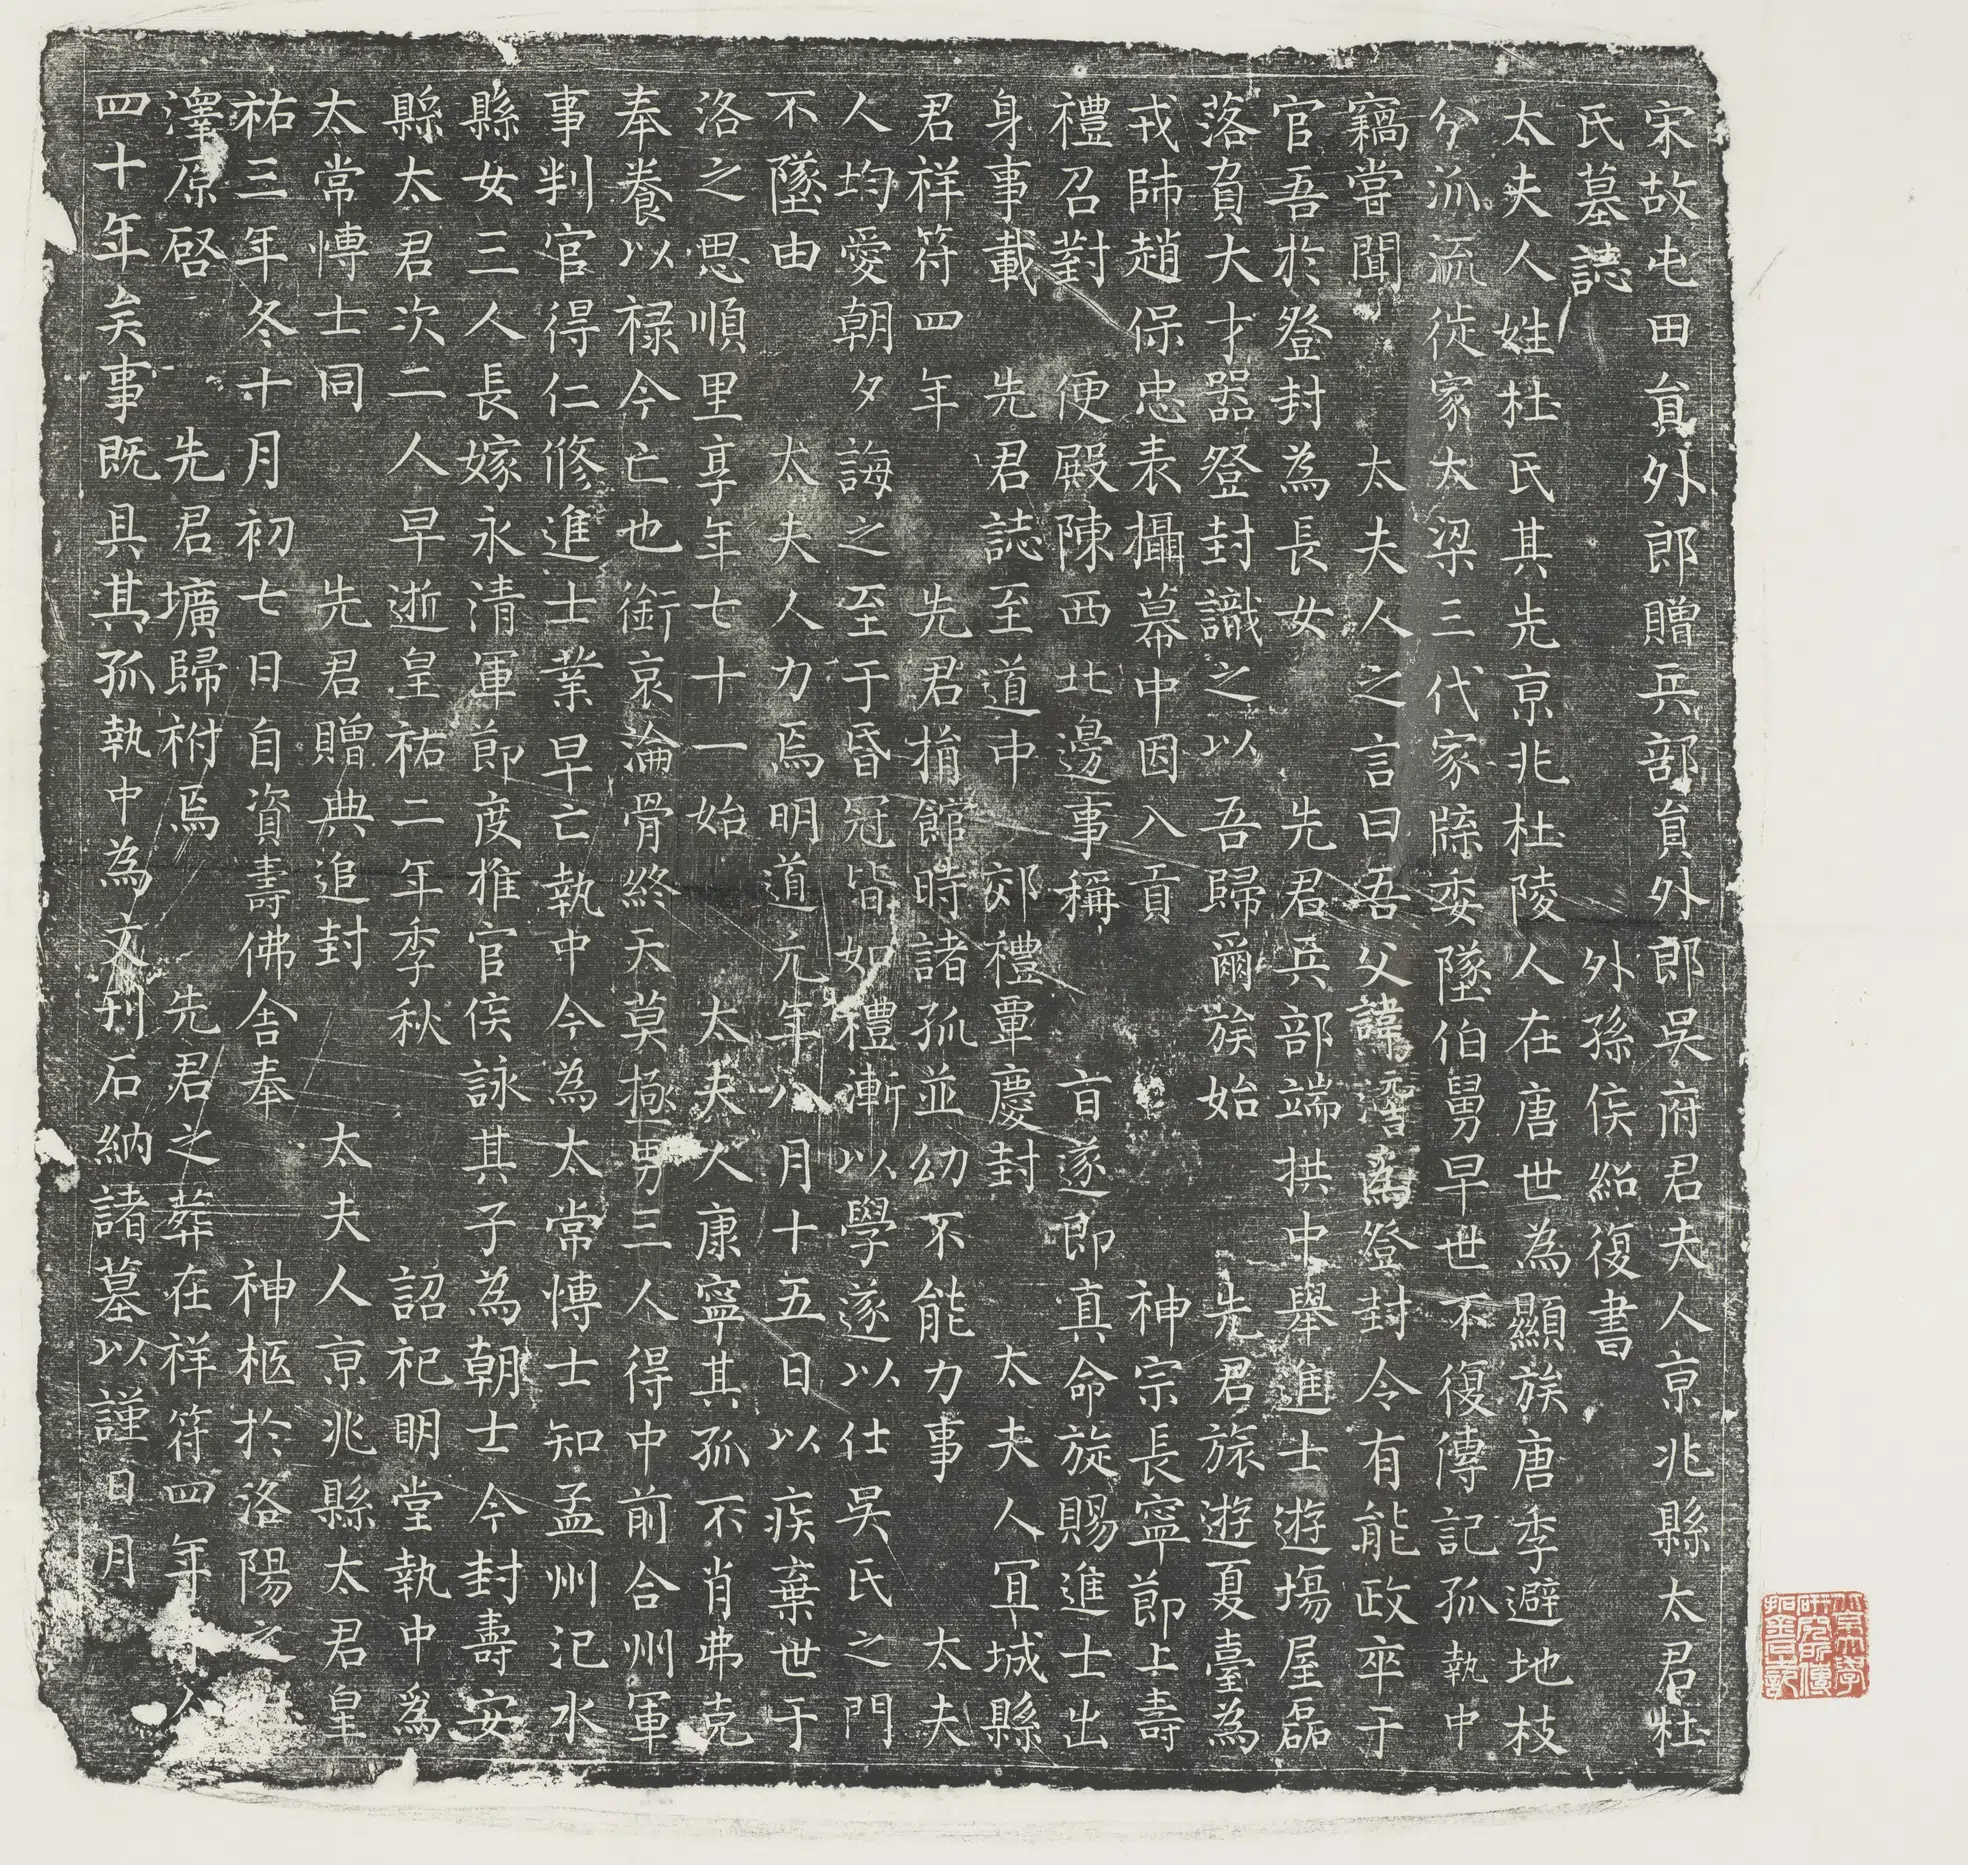 宋故屯田負外郎贈兵部負外郎吳府君夫人京兆縣太君杜
氏墓誌 外孫侯紹復書
太夫人姓杜氏其先京兆杜陵人在唐世為顯族唐季避地枝
分派流徙家大梁三代家牒委墜伯舅早世不復傳記孤執中
竊嘗聞 太夫人之言曰吾父諱為登封令有能政卒于
官吾於登封為長女 先君兵部端拱中舉進士遊塲屋磊
落負大才器登封識之以吾歸爾族始 先君旅遊夏臺為
戎帥趙保忠表攝幕中因入貢 神宗長寧節上壽
禮召對 便殿陳西北邊事稱 旨遂即真命旋賜進士出
身事載 先君誌至道中 郊禮覃慶封 太夫人冝城縣
君祥符四年 先君捐館時諸孤並幼不能力事 太夫
人均愛朝夕誨之至于昏冠皆如禮漸以學遂以仕吳氏之門
不墜由 太夫人力焉明道元年八月十五日以疾棄世于
洛之思順里享年七十一始 太夫人康寧其孤不肖弗克
奉養以禄今亡也銜哀淪骨終天莫極男三人得中前合州軍
事判官得仁修進士業早亡執中今為太常博士知孟州汜水
縣女三人長嫁永清軍節度推官侯詠其子為朝士今封壽安
縣太君次二人早逝皇祐二年季秋 詔祀明堂執中為
太常博士同 先君贈典追封 太夫人京兆縣太君皇
祐三年冬十月初七日自資壽佛舍奉 神柩於洛陽之
澤原啓 先君壙歸祔焉 先君之葬在祥符四年
四十年矣事既具其孤執中為文刊石納諸墓以謹日月